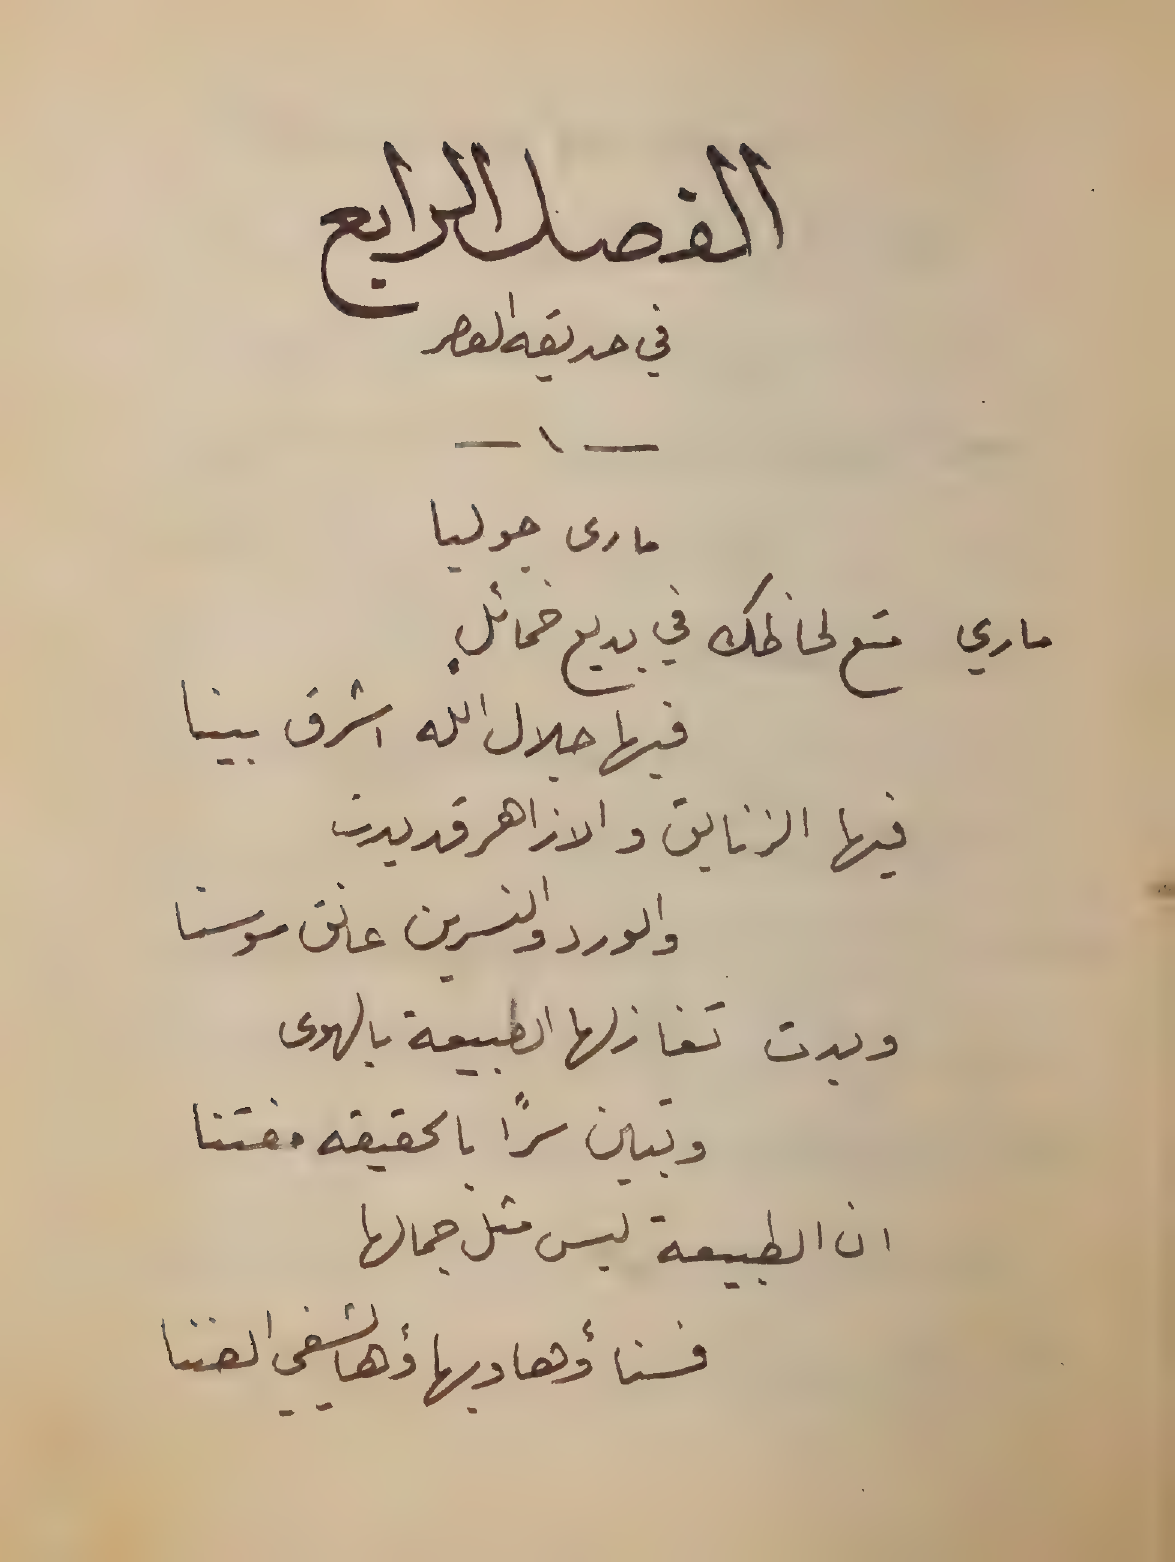 الفصل الرابع
في حديقه القصر
— ١ —
مارى جوليا
ماري متع لحاظك في بديع خمائل
فيها جلال الله اشرق بيننا
فيها الزنابق والازاهر قد بدت
والورد والنسرين عانق سوسنا
وبدت تغازلها الطبيعة بالهوى
وتبين سرًا بالحقيقه مفتنا
ان الطبيعة ليس مثل جمالها
فسناؤها وبهاؤها يشفي الضنا